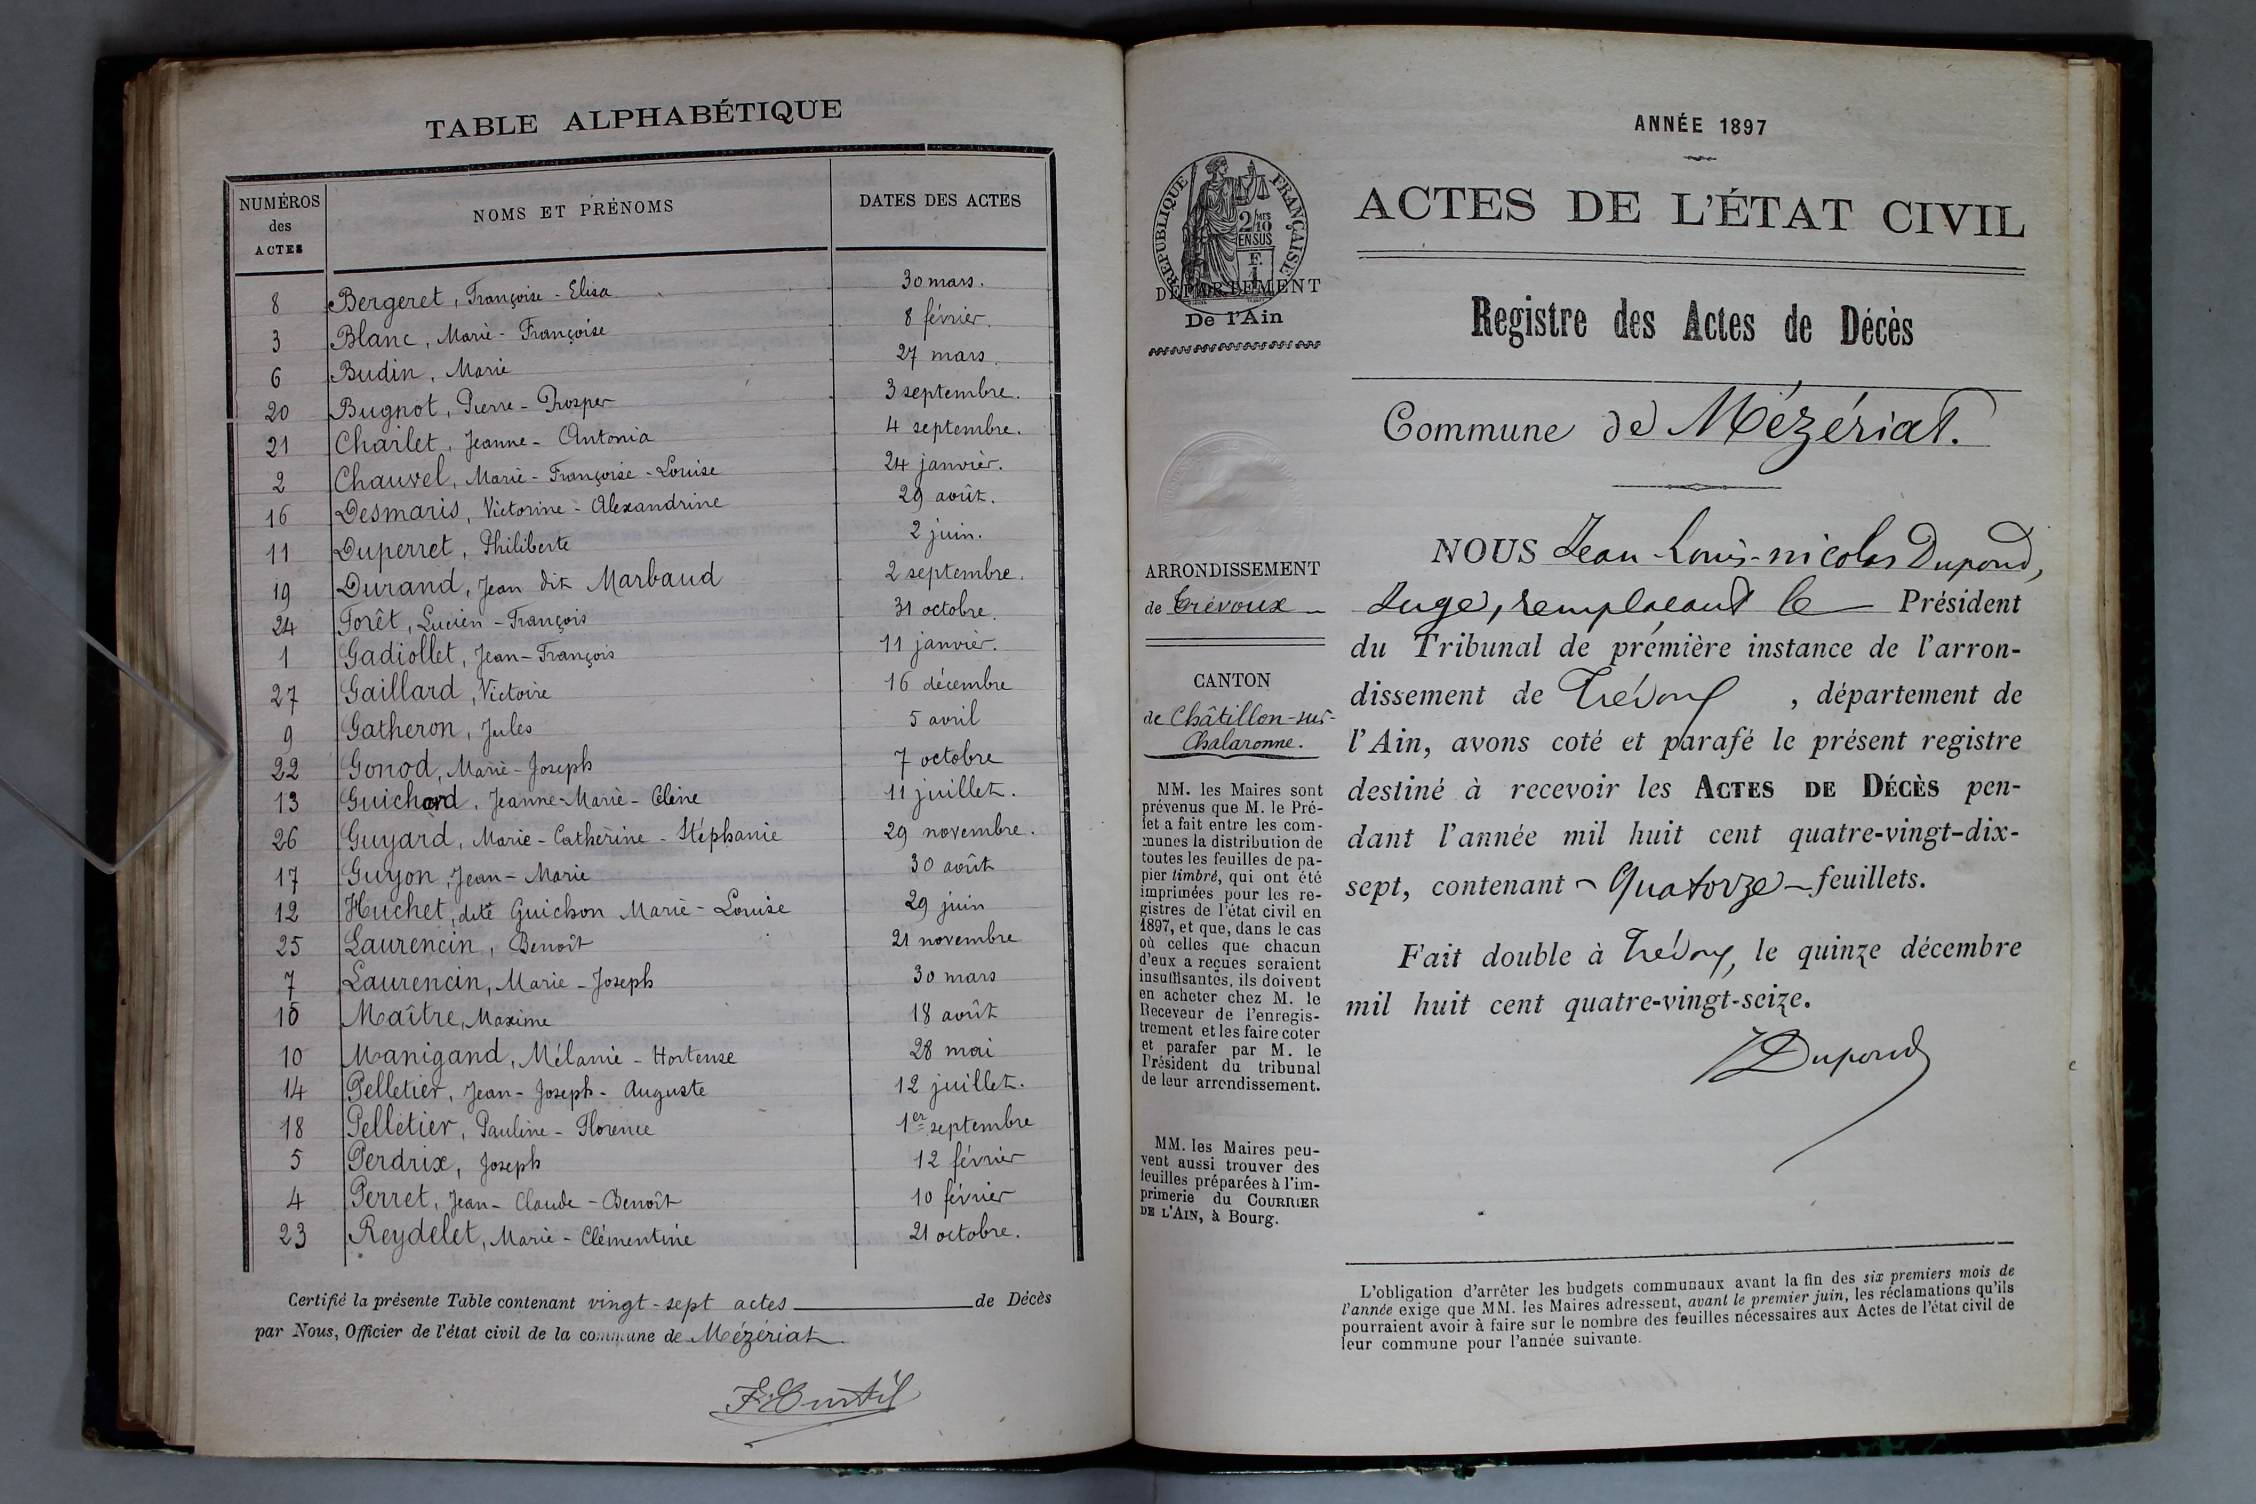 TABLE ALPHABÉTIQUE
NUMÉROS des ACTES
NOMS ET PRÉNOMS
DATES DES ACTES
8 Bergeret, Françoise - Elisa 30 mars.
3 Blanc, Marie - Françoise 8 février.
6 Budin, Marie 27 mars.
20 Bugnot, Pierre - Prosper 3 septembre.
21 Charlet, Jeanne - Antonia 4 septembre.
2 Chauvel, Marie - Françoise - Louise 24 janvier.
16 Desmaris, Victorine - Alexandrine 29 août.
11 Duperret, Philiberte 2 juin.
19 Durand, Jean dit Marbaud 2 septembre.
24 Forêt, Lucien - François 31 octobre.
1 Gadiollet, Jean - François 11 janvier.
27 Gaillard, Victoire 16 décembre
9 Gatheron, Jules 5 avril
22 Gonod, Marie - Joseph 7 octobre
13 Guichard, Jeanne - Marie - Céline 11 juillet.
26 Guyard, Marie - Catherine - Stéphanie 29 novembre.
17 Guyon, Jean - Marie 30 août
12 Huchet, dite Guichon Marie - Louise 29 juin
25 Laurencin, Benoît 21 novembre
7 Laurencin, Marie - Joseph 30 mars
15 Maître, Maxime 18 août
10 Manigand, Mélanie - Hortense 28 mai
14 Pelletier, Jean - Joseph - Auguste 12 juillet.
18 Pelletier, Pauline - Florence 1er septembre
5 Perdrix, Joseph 12 février
4 Perret, Jean - Claude - Benoît 10 février
23 Reydelet, Marie - Clémentine 21 octobre.
Certifié la présente Table contenant vingt-sept actes de Décès
par Nous, Officier de l'état civil de la commune de Mézériat
ANNÉE 1897
RÉPUBLIQUE FRANÇAISE
2/10 MES
EN SUS
F. 1
ACTES DE L'ÉTAT CIVIL
DÉPARTEMENT
De l'Ain
Registre des Actes de Décès
Commune de Mézériat.
ARRONDISSEMENT
de Trévoux
CANTON
de Châtillon-sur-
Chalaronne.
MM. les Maires sont
prévenus que M. le Pré-
fet a fait entre les com-
munes la distribution de
toutes les feuilles de pa-
pier timbré, qui ont été
imprimées pour les re-
gistres de l'état civil en
1897, et que, dans le cas
où celles que chacun
d'eux a reçues seraient
insuffisantes, ils doivent
en acheter chez M. le
Receveur de l'enregis-
trement et les faire coter
et parafer par M. le
Président du tribunal
de leur arrondissement.
MM. les Maires peu-
vent aussi trouver des
feuilles préparées à l'im-
primerie du COURRIER
DE L'AIN, à Bourg.
NOUS Jean-Louis-nicolas Dupond,
Juge, remplacant le Président
du Tribunal de première instance de l'arron-
dissement de Trévoux, département de
l'Ain, avons coté et parafé le présent registre
destiné à recevoir les ACTES DE DÉCÈS pen-
dant l'année mil huit cent quatre-vingt-dix-
sept, contenant Quatorze feuillets.
Fait double à Trévoux, le quinze décembre
mil huit cent quatre-vingt-seize.
Dupond
L'obligation d'arrêter les budgets communaux avant la fin des six premiers mois de
l'année exige que MM. les Maires adressent, avant le premier juin, les réclamations qu'ils
pourraient avoir à faire sur le nombre des feuilles nécessaires aux Actes de l'état civil de
leur commune pour l'année suivante.